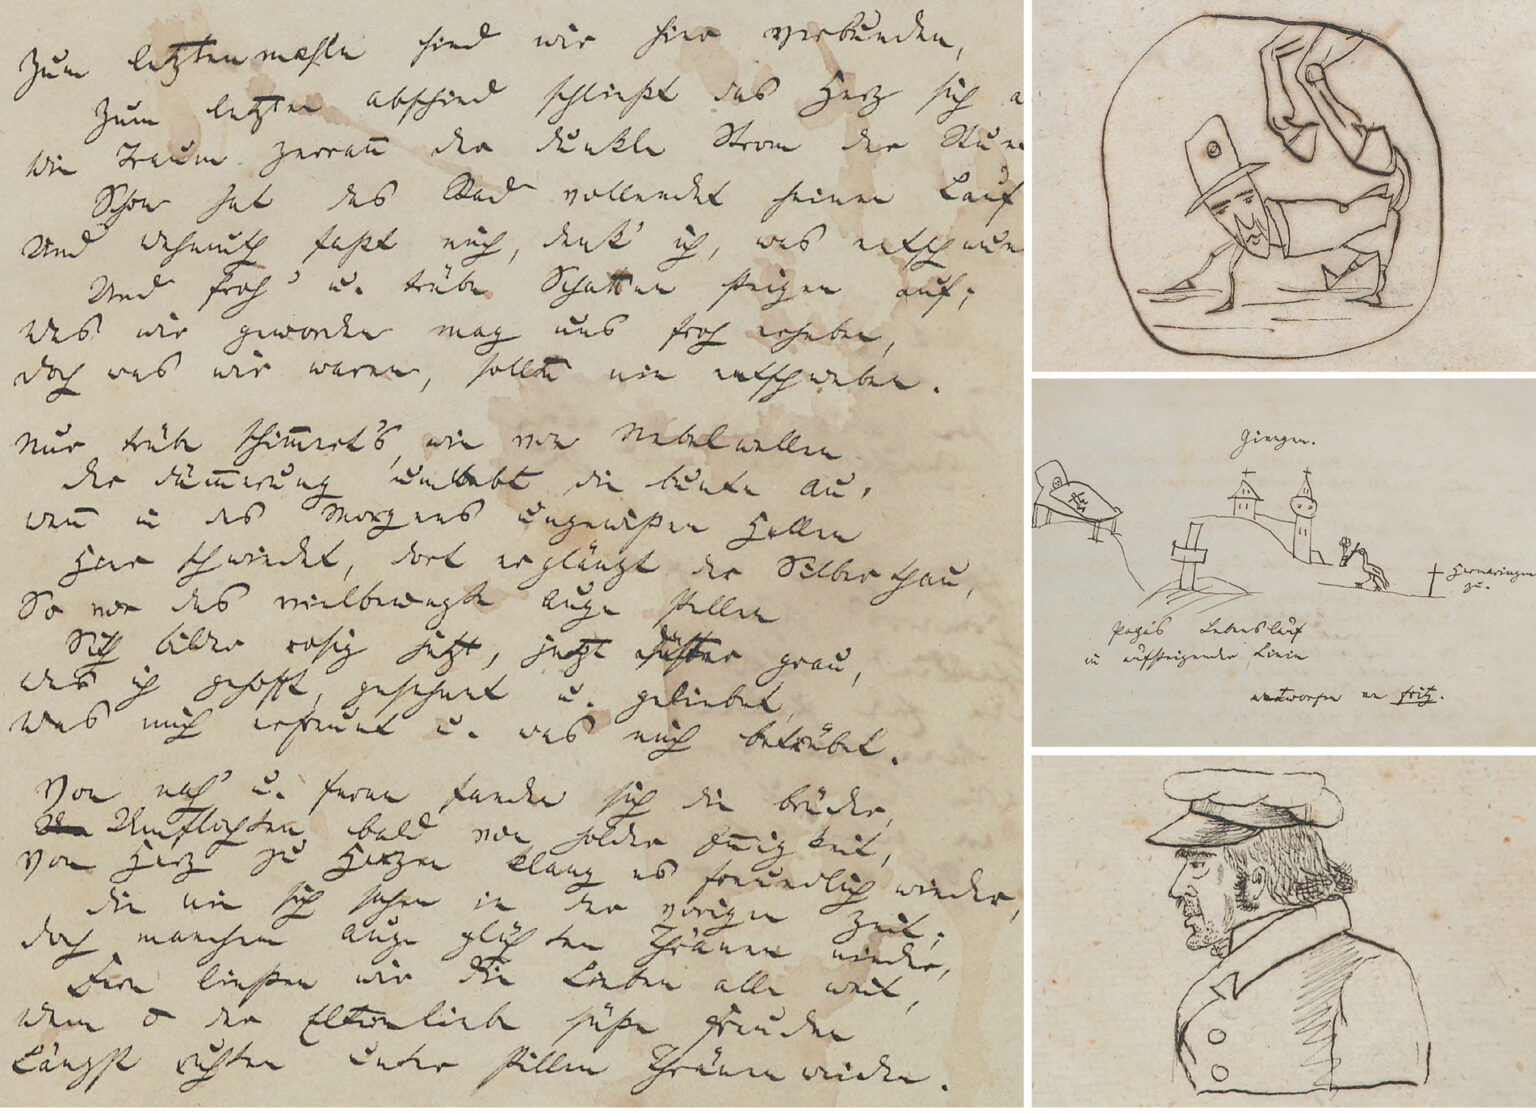 Zum letztenmahle sind wir hier verbunden,
Zum letzten abschied schließt das Herz sich a
Wie Traum zerran̅ der dunkle Strom der Stun
Schon hat das Rad vollendet seinen Lauf
Und wehmuth faßt mich, denk' ich, was entschwun
Und froh' u. trübe Schatten steigen auf;
Was wir geworden mag uns froh erheben,
doch was wir waren, sollt̅ nie entschweben.
Nur trübe schim̅ert's, wie von Nebelwellen
der däm̅erung umbebt die bunte au,
wen̅ in des Morgens ungewißen Hellen
Hier schwindet, dort erglänzt der Silberthau,
So vor das vielbewegte auge stellen
Sich bilder rosig jetzt, jetzt düster grau,
was ich gehofft, gesehnt u. geliebet,
was mich erfreut u. was mich betrübet.
Von nah' u. ferne fanden sich die brüder,
Umflochten bald von holder In̅igkeit,
Von Herz zu Herzen klang es freundlich wieder,
die nie sich sahen in der vorigen Zeit;
doch manchem auge glühten Thränen nieder,
Fern ließen wir die Lieben alle weit,
wem o der Elternliebe süße Freuden
Längst ruhten unter stillen Thränenweiden.
Giengen.
Hermaringen
zu.
Papa's Lebenslauf
in aufsteigender Linie
entworfen von Fritz.